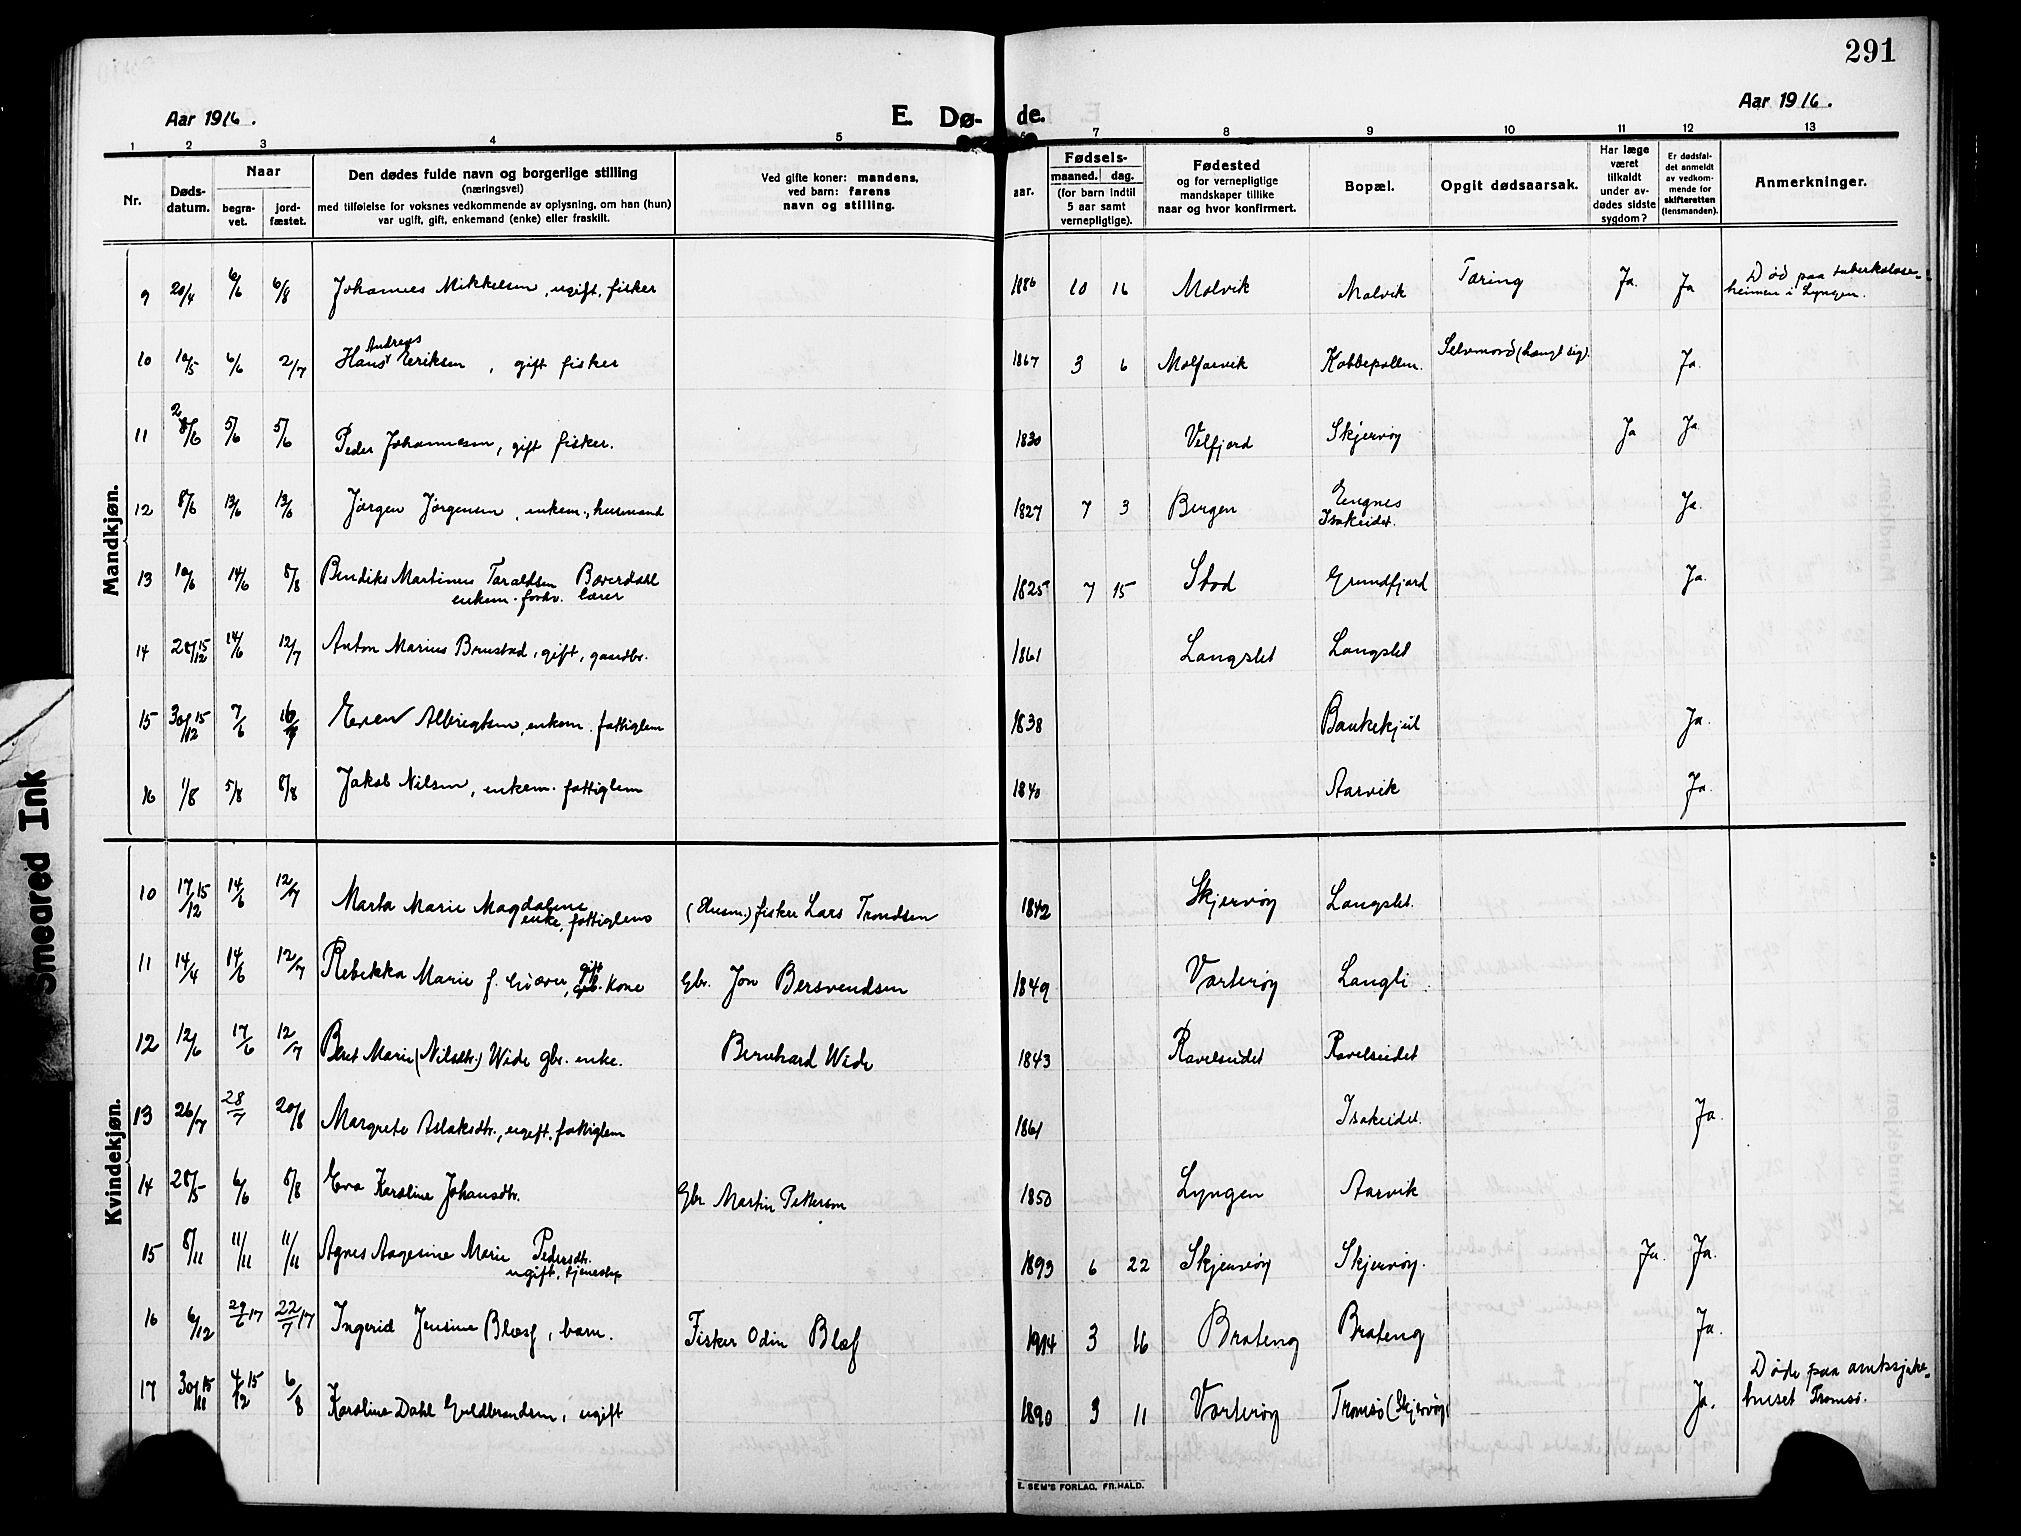 291
Aar 1916.
E. Dø-
de.
Aar 1916.
1 2 3 4 5 6 7 8 9 10 11 12 13
Nr.
Døds-
datum.
Naar
begra-
vet.
jord-
fæstet.
Den dødes fulde navn og borgerlige stilling
(næringsvei)
med tilføielse for voksnes vedkommende av oplysning, om han (hun)
var ugift, gift, enkemand (enke) eller fraskilt.
Ved gifte koner: mandens,
ved barn: farens
navn og stilling.
Fødsels-
aar.
maaned.
dag.
(for barn indtil
5 aar samt
vernepligtige).
Fødested
og for vernepligtige
mandskaper tillike
naar og hvor konfirmert.
Bopæl.
Opgit dødsaarsak.
Har læge
været
tilkaldt
under av-
dødes sidste
sygdom?
Er dødsfal-
det anmeldt
av vedkom-
mende for
skifteretten
(lensmanden).
Anmerkninger.
Mandkjøn.
9 20/4 6/6 6/8 Johannes Mikkelsen, ugift, fisker 1886 10 16 Molvik Molvik Tæring Ja. Ja Død paa tuberkulose-
heimen i Lyngen.
10 10/5 6/6 2/7 Hans Andreas Eriksen, gift fisker 1867 3 6 Kobbepollen. Selvmord (hængt sig). Ja.
11 28/6 5/6 5/6 Peder Johannesen, gift fisker. 1830 Velfjord Skjervøy Ja Ja.
12 8/6 13/6 13/6 Jørgen Jørgensen, enkem., husmand 1827 7 3 Bergen Engnes
Isakeidet. Ja.
13 10/6 14/6 8/8 Bendiks Martinus Taraldsen Bæverdahl
enkem. forhv. lærer 1825 7 15 Stod Grundfjord Ja.
14 28/12 15 14/6 12/7 Anton Marius Bornstad, gift, gaardbr. 1861 Langslet Langslet
15 30/12 15 7/6 Albrigtsen, enkem. fattiglem 1838 Baukekjeil Ja.
16 1/8 5/8 8/8 Jakob Nilsen, enkem. fattiglem 1840 Aarvik Ja.
Kvindekjøn.
10 17/12 15 14/6 12/7 Marta Marie Magdalene
enke, fattiglem (Husm.) fisker Lars Trondsen 1842 Skjervøy Langslet.
11 14/4 14/6 12/7 Rebekka Marie f. Giæver, gift Kone Gbr. Jon Bersvendsen 1849 Vorterøy Langli
12 12/6 17/6 12/7 Beret Marie (Nilsdtr.) Wide gbr. enke. Bernhard Wide 1843 Ravelseidet Ravelseidet
13 26/7 28/7 20/8 Margrete Aslaksdtr., ugift, fattiglem 1861 Isakeidet. Ja.
14 28/5 6/6 8/8 Eva Karoline Johansdtr. Gbr Martin Pettersen 1850 Lyngen Aarvik
15 8/11 11/11 11/11 Agnes Aagesine Marie Pedersdtr.
ugift, tjeneste 1893 6 22 Skjervøy Skjervøy. Ja. Ja.
16 6/12 29/6 17 22/7 17 Ingerid Jensine Blæsf, barn. Fisker Odin Blæf 1914 3 16 Brateng Brateng Ja.
17 30/11 15 4/12 15 6/8 Karoline Dahl Guldbrandsen, ugift 1890 3 11 Vorterøy Tromsø (Skjervøy) Ja. Døde paa amtssjuke-
huset Tromsø.
E. SEM'S FORLAG, FR.HALD.
Smeared Ink